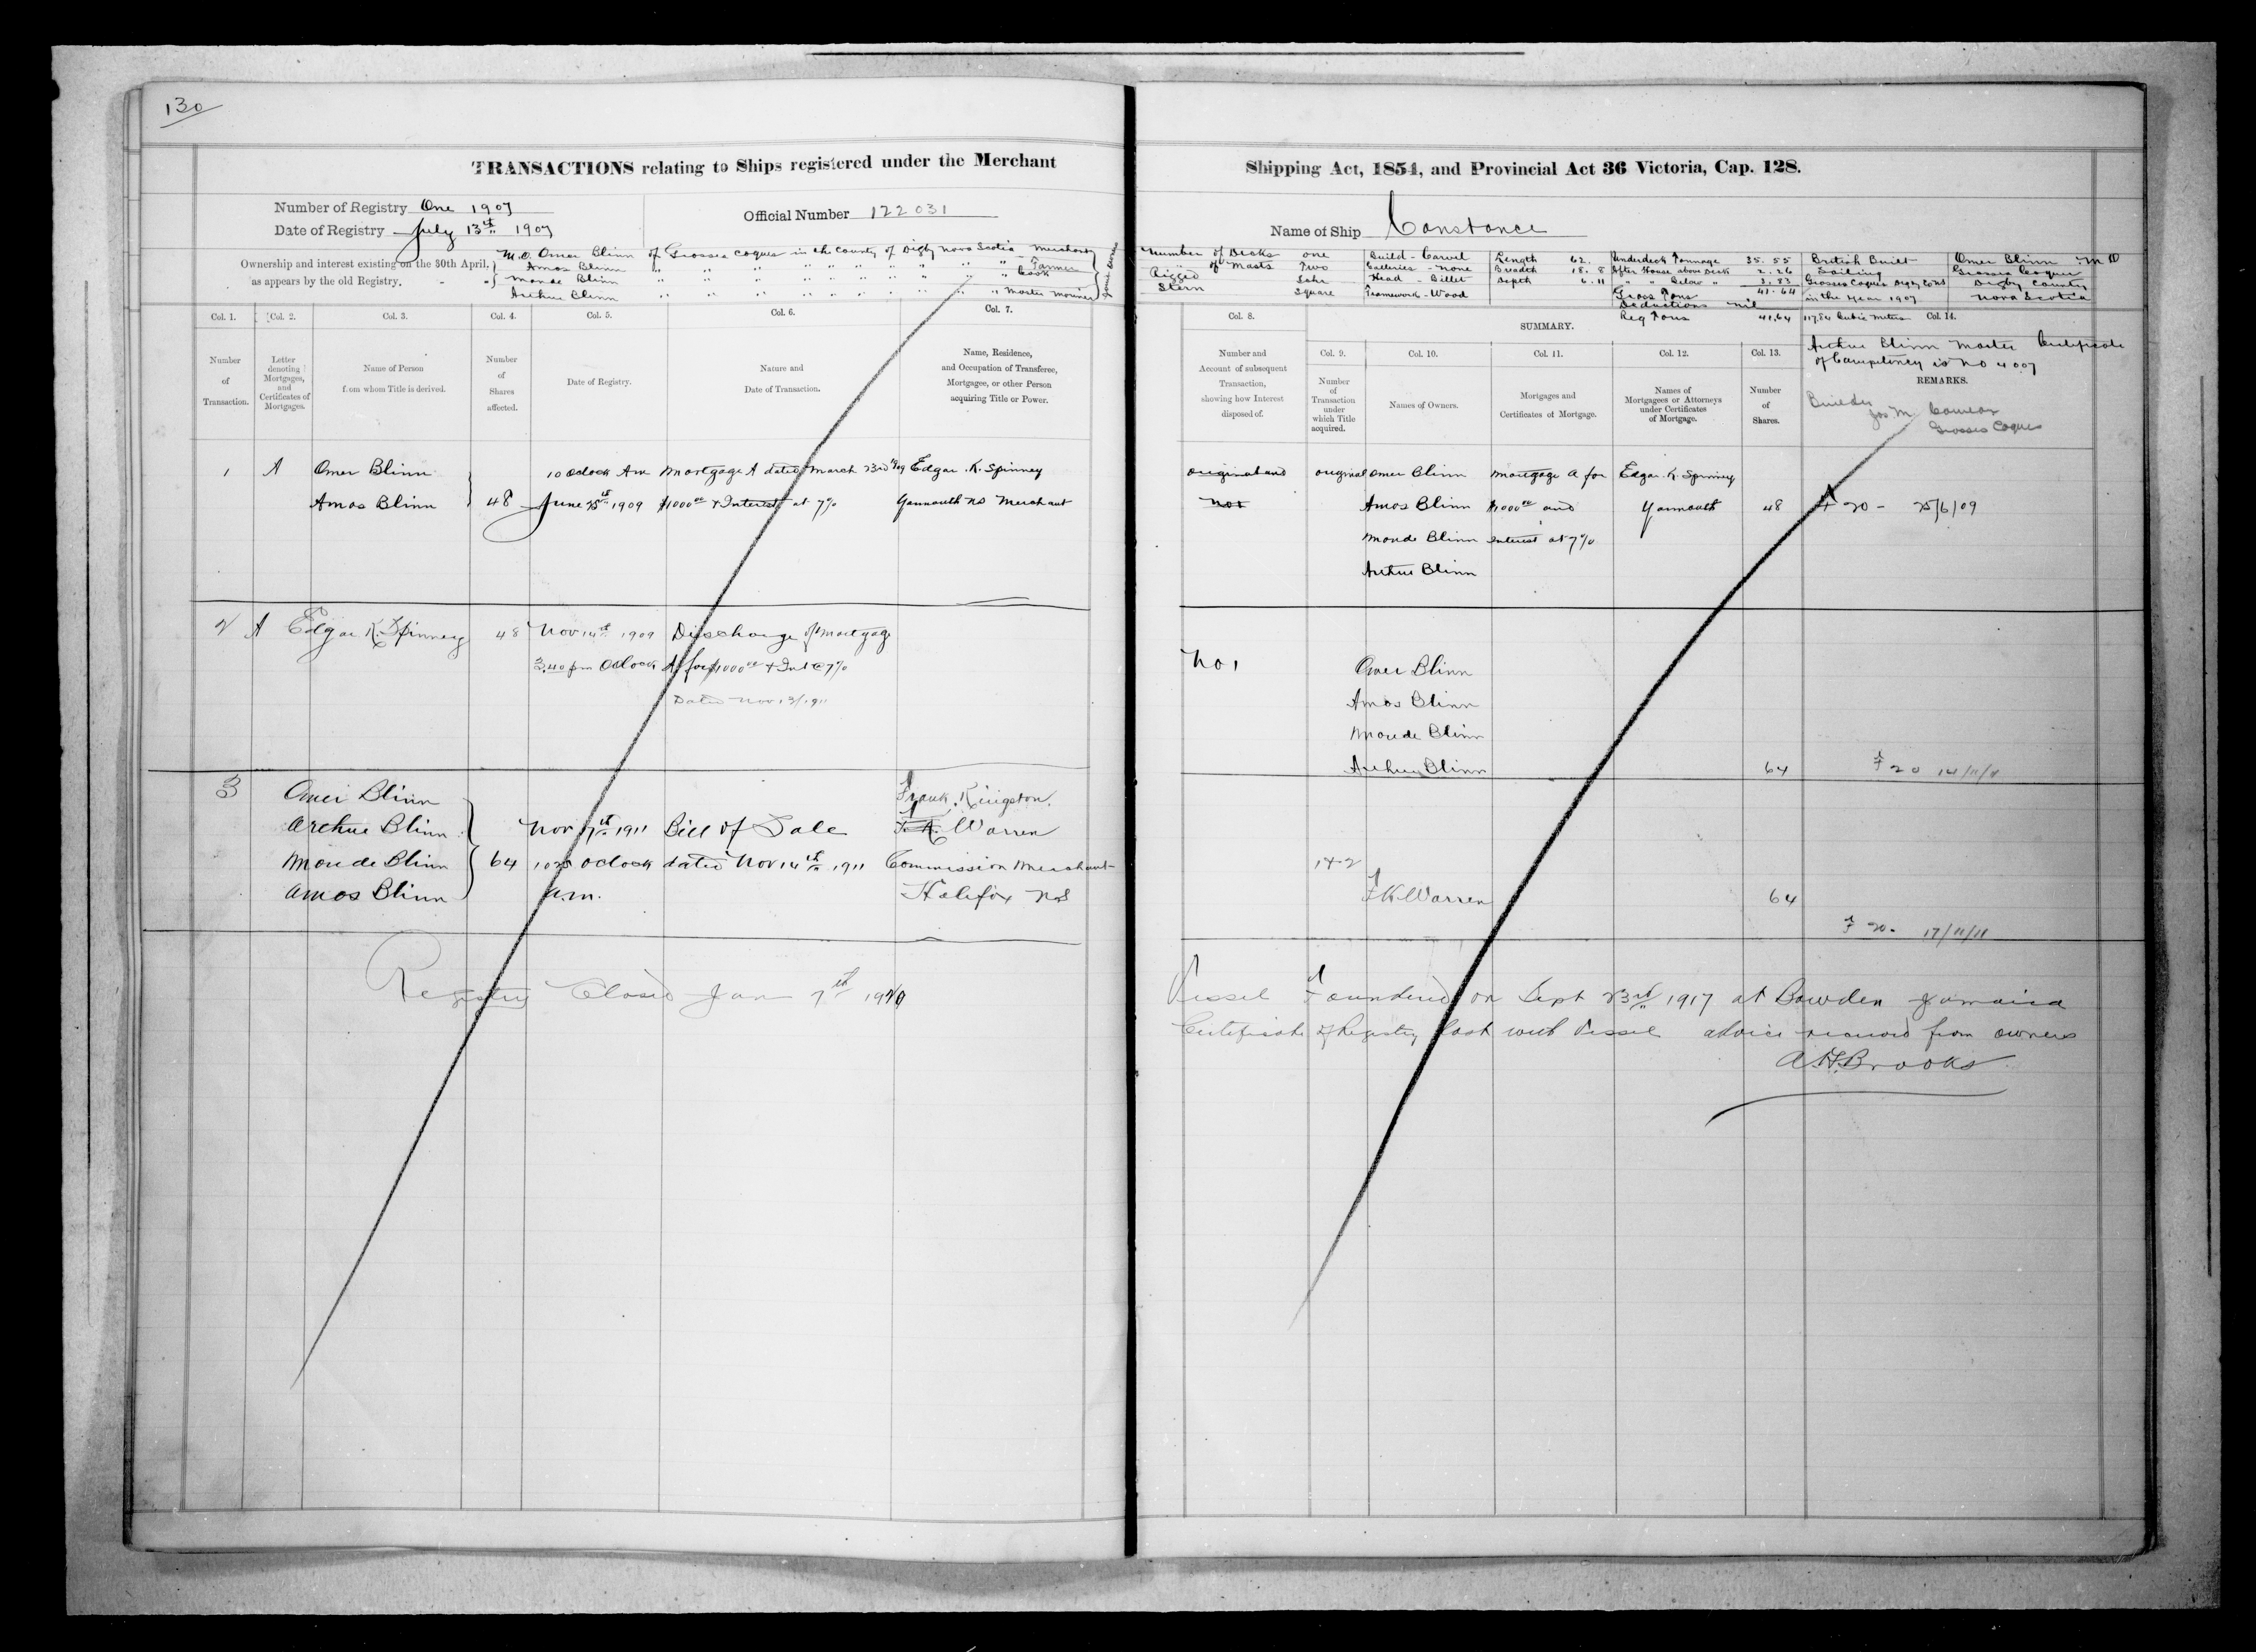 130
TRANSACTIONS relating to Ships registered under the Merchant
Number of Registry One 1907
Date of Registry July 13th 1907
Official Number 122031
Ownership and interest existing on the 30th April,
as appears by the old Registry.
M.O. Omer Blinn of Grosses Coques in the County of Digby Nova Scotia Merchant
Amos Blinn " " " " " " " " " Farmer
Monde Blinn " " " " " " " " " Cook
Arthur Blinn " " " " " " " " " Master Mariner
Joint Owners
Col. 1.
Col. 2.
Col. 3.
Col. 4.
Col. 5.
Col. 6.
Col. 7.
Number of Transaction.
Letter denoting Mortgages, and Certificates of Mortgages.
Name of Person from whom Title is derived.
Number of Shares affected.
Date of Registry.
Nature and Date of Transaction.
Name, Residence, and Occupation of Transferee, Mortgagee, or other Person acquiring Title or Power.
1 A Omer Blinn 10 Oclock Am Mortgage A dated March 23rd 1909 Edgar K. Spinney
Amos Blinn 48 June 25th 1909 $1000 00 & Interest at 7% Yarmouth NS Merchant
2 A Edgar K. Spinney 48 Nov 14th 1909 Discharge of Mortgage
3.40 pm Oclock A for $1000 00 & Int @ 7%
Dated Nov 13/1911
3 Omer Blinn Frank Kingston
Arthur Blinn Nov 17th 1911 Bill of Sale Warren
Monde Blinn 64 1025 Oclock dated Nov 14th 1911 Commission Merchant
Amos Blinn a.m. Halifax NS
Registry Closed Jan 7th
Shipping Act, 1854, and Provincial Act 36 Victoria, Cap. 128.
Name of Ship Constance
Number of Decks one Build - Carvel Length 62. Underdeck Tonnage 35.55 British Built Omer Blinn M O
" of Masts Two Galleries - none Breadth 18.8 After House above Deck 2.26 Sailing Grosses Coques
Rigged Schr Head - Billet Depth 6.11 " " Below " 3.83 Grosses Coques Digby Co NS Digby County
Stern Square Framework - Wood Gross Tons 41.64 in the year 1907 Nova Scotia
Deductions nil
Reg Tons 41.64 117.84 Cubic Metres
Col. 8.
SUMMARY.
Col. 14.
Col. 9.
Col. 10.
Col. 11.
Col. 12.
Col. 13.
Arthur Blinn Master Certificate
of Competency is No 4007
REMARKS.
Number and Account of subsequent Transaction, showing how Interest disposed of.
Number of Transaction under which Title acquired.
Names of Owners.
Mortgages and Certificates of Mortgage.
Names of Mortgagees or Attorneys under Certificates of Mortgage.
Number of Shares.
Builder
Jos M Comeau
Grosses Coques
original and original Omer Blinn Mortgage A for Edgar K. Spinney
No 1 Amos Blinn $1000 00 and Yarmouth 48 F 20 - 25/6/09
Monde Blinn Interest at 7%
Arthur Blinn
No 1 Omer Blinn
Amos Blinn
Monde Blinn
Arthur Blinn 64 F 20 14/11/11
1 & 2
F K Warren 64
F 20. 17/11/11
Vessel Foundered on Sept 23rd 1917 at Bowden Jamaica
Certificate of Registry lost with Vessel advice received from owners
A.H. Brooks